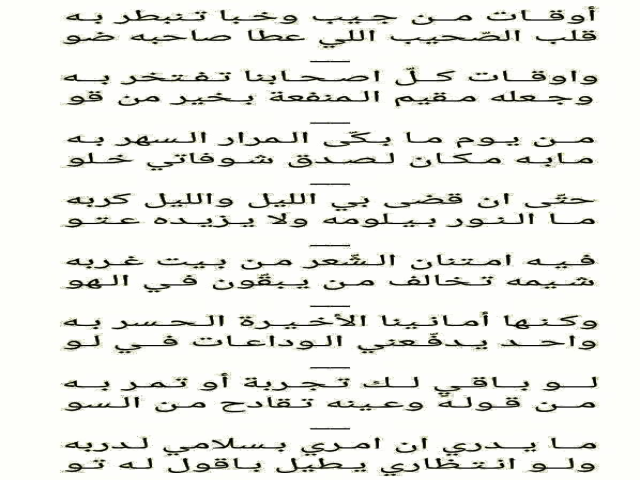 أوقات من جيب وخبا تنبطر به
قلب الصّحيب اللي عطا صاحبه ضو
واوقات كلّ اصحابنا تفتخر به
وجعله مقيم المنفعة بخير من قو
من يوم ما بكّى المرار السهر به
مابه مكان لصدق شوفاتي خلو
حتّى ان قضى بي الليل والليل كربه
ما النور بيلومه ولا يزيده عتو
فيه امتنان الشّعر من بيت غربه
شيمه تخالف من يبقّون في الهو
وكنها أمانينا الأخيرة الحسر به
واحد يدفّعني الوداعات في لو
لو باقي لك تجربة أو تمر به
من قولةٌ وعينه تقادح من السو
ما يدري ان امري بسلامي لدربه
ولو انتظاري يطيل باقول له تو